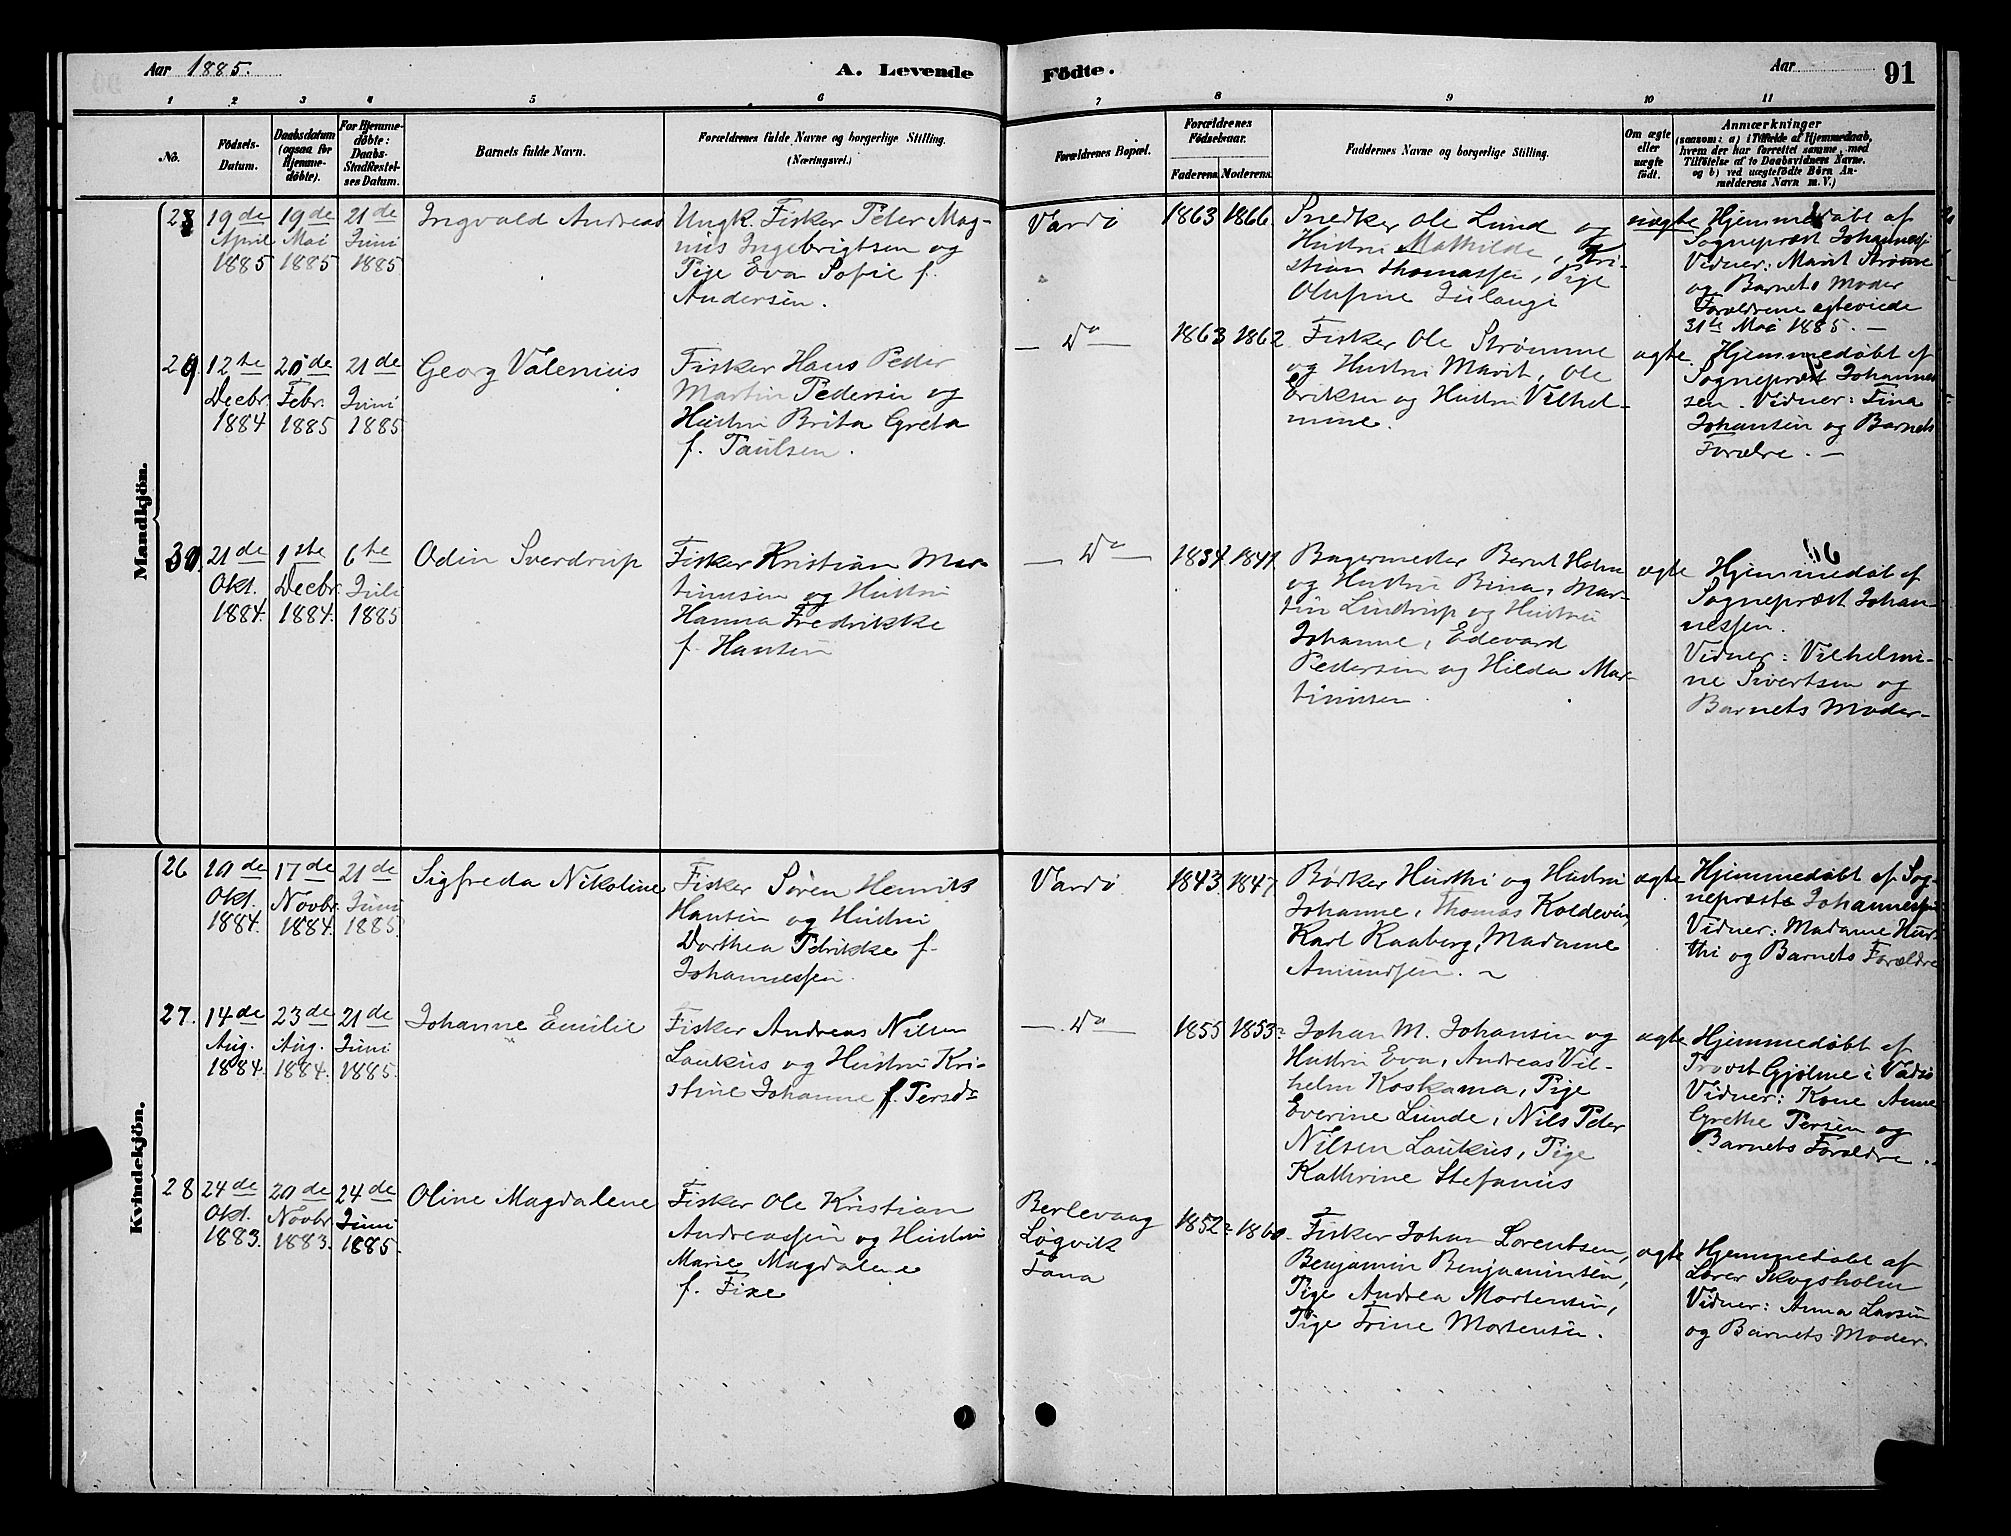 Aar 1885.
A. Levende
Fødte.
Aar
91
1 2 3 4 5 6 7 8 9 10 11
No.
Fødsels-
Datum.
Daabsdatum
(ogsaa for
Hjemme-
døbte).
For Hjemme-
døbte:
Daabs-
Stadfæstel-
ses Datum.
Barnets fulde Navn.
Forældrenes fulde Navne og borgerlige Stilling.
(Næringsvei.)
Forældrenes Bopæl.
Forældrenes
Fødselsaar.
Faderens. Moderens.
Faddernes Navne og borgerlige Stilling.
Om ægte
eller
uægte
født.
Anmærkninger
(saasom: a) i Tilfælde af Hjemmedaab,
hvem der har forrettet samme, med
Tilføielse af to Daabsvidners Navne.
og b) ved uægtefødte Børn An-
melderens Navn m. V.)
Mandkjøn.
28
19de
April
1885
19de
Mai
1885
21de
Juni
1885
Ingvald Andreas
Ungk. Fisker Peter Mag-
nus Ingebrigtsen og
Pige Eva Sofie f.
Andersen.
Vardø
1863 1866
Snedker Ole Lund og
Hustru Mathilde, Kri-
stian Thomassen, Pige
Olufine
uægte
Hjemmedøbt af
Sognepræst Johannes
Vidner: Marit Strømme
og Barnets Moder
Forældrene egteviede
31te Mai 1885. —
29
12te
Decbr.
1884
20de
Febr.
1885
21de
Juni
1885
Georg Valenius
Fisker Hans Peder
Martin Pedersen og
Hustru Brita Greta
f. Paulsen.
— Do —
1863 1862
Fisker Ole Strømme
og Hustru Marit, Ole
Eriksen og Hustru Vilhel-
mine.
ægte.
Hjemmedøbt af
Sognepræst Johannes
sen. Vidner: Fina
Johansen og Barnets
Forælre. —
30.
21de
Okt.
1884.
1ste
Decbr.
1884.
6te
Juli
1885
Odin Sverdrup
Fisker Kristian Mar-
tinusen og Hustru
Hanna Fredrikke
f. Hansen
— Do —
1834 1841
Bagermester Bernt Holm
og Hustru Bina, Mar-
tin Lindtrup og Hustru
Johanne, Edevard
Pedersen og Hilda Mar-
tinusen.
ægte
Hjemmedøbt af
Sognepræst Johan-
nessen.
Vidner: Vilhelmi-
ne Sivertsen og
Barnets Moder-
Kvindekjön.
26
10de
Okt.
1884.
17de
Novbr.
1884.
21de
Juni
1885.
Sigfreda Nikoline
Fisker Søren Henrik
Hansen og Hustru
Dorthea Pedrikke f.
Johannessen.
Vardø
1843 1847
Bødker Hurthi og Hustru
Johanne, Thomas Koldevin,
Karl Raaberg, Madame
Amundsen. ~
ægte
Hjemmedøbt af Sog-
nepræst Johannessen
Vidner: Madame Hur-
thi og Barnets Forældre
27.
14de
Aug.
1884.
23de
Aug.
1884.
21de
Juni
1885.
Johanne Emilie
Fisker Andreas Nilsen
Laukus og Hustru Kri-
stine Johanne f. Persdr
— Do —
1855 1853?
Johan M. Johansen og
Hustru Eva, Andreas Vil-
helm Koskama, Pige
Everine Lunde, Nils Peter
Nilsen Laukus, Pige
Kathrine Stefanus
ægte
Hjemmedøbt af
Provst Gjølme i Vadsø
Vidner: Kone Anne
Grethe Persen og
Barnets Forældre.
28
24de
Okt.
1883.
20de
Novbr.
1883.
24de
Juni
1885.
Oline Magdalene
Fisker Ole Kristian
Andreassen og Hustru
Marie Magdalene
f. Fixe
Berlevaag
Løgvik
Tana
1852? 1860.
Fisker Johan Lorentsen,
Benjamin Benjaminsen,
Pige Andrea Mortensen,
Pige Trine Mortensen.
ægte
Hjemmedøbt af
Lærer Skogsholm
Vidner: Anna Larsen
og Barnets Moder.